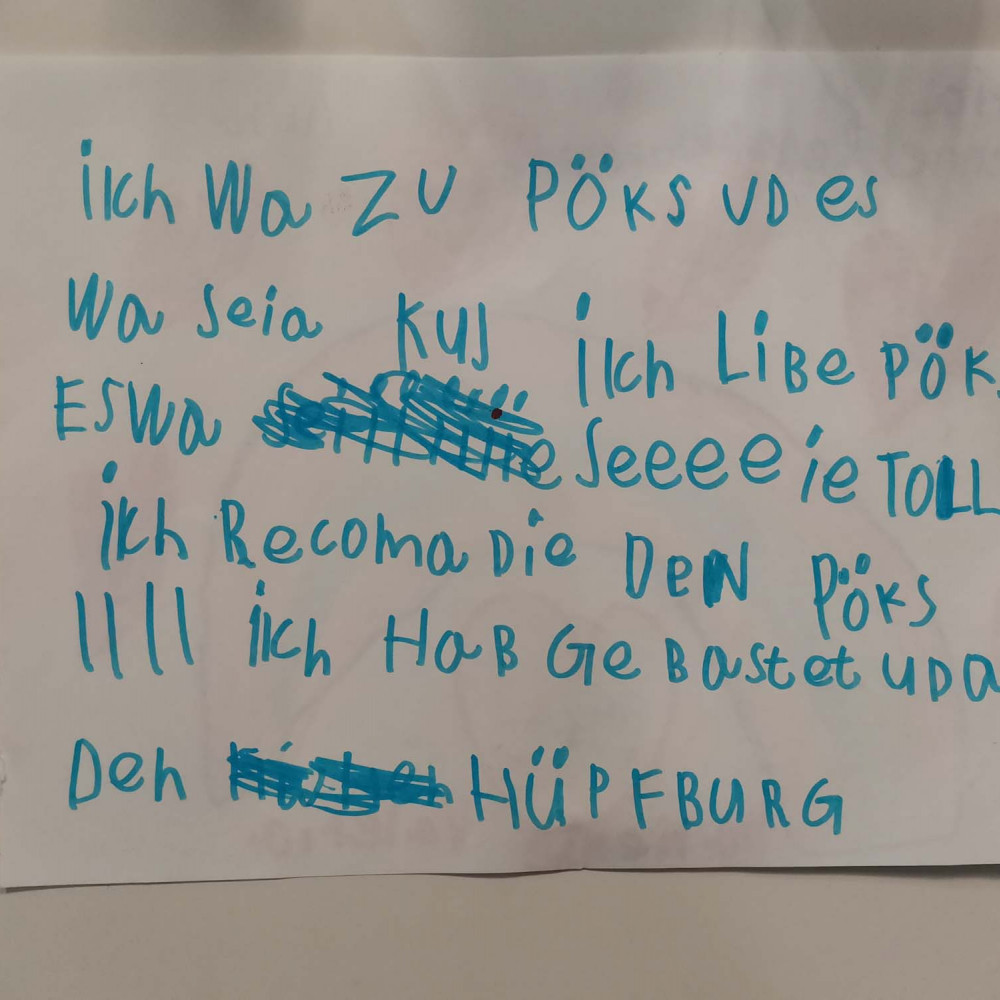 ich Wa ZU PÖKS UD es
Wa seia KUS ich LiBe PÖKS
ESWa Seeeeie TOLL
ich Recoma Die DeN PÖKS
|||| ich HaB GeBastet UDa
Deh HÜPFBURG